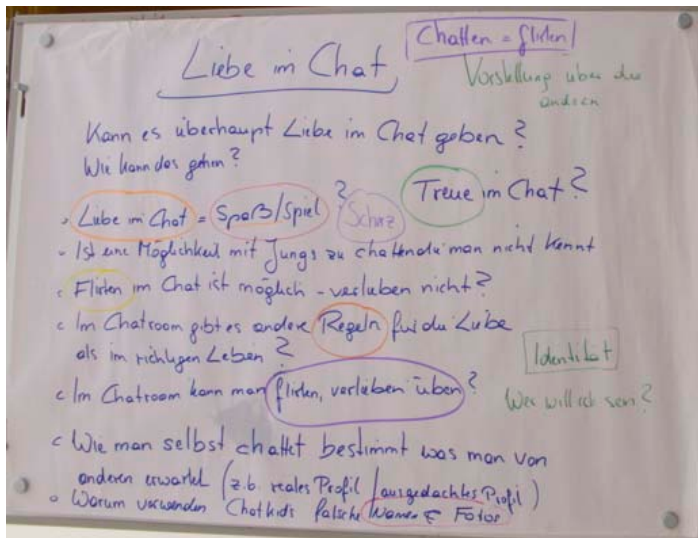 Chatten = flirten
Liebe im Chat
Vorstellung über die
andern
Kann es überhaupt Liebe im Chat geben?
Wie kann das gehen?
Treue im Chat?
Liebe im Chat = Spaß/Spiel ?
- Ist eine Möglichkeit mit Jungs zu chatten die man nicht kennt
Flirten im Chat ist möglich - verlieben nicht?
Im Chatroom gibt es andere Regeln für die Liebe
als im richtigen Leben?
Identität
Im Chatroom kann man flirten, verlieben üben?
Wer will ich sein?
Wie man selbst chattet bestimmt was man von
anderen erwartet (z.b. reales Profil / ausgedachtes Profil)
Warum verwenden Chatkids falsche Fotos